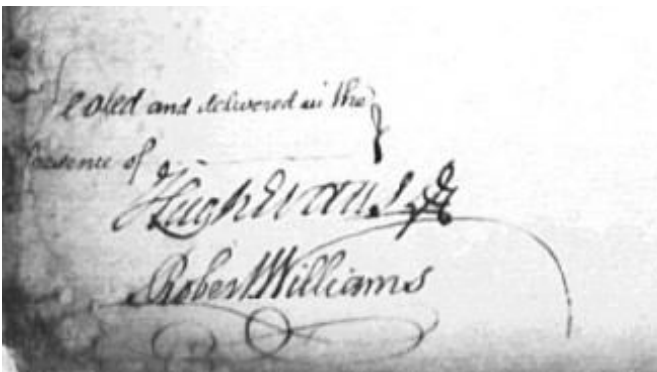 Sealed and delivered in the
presence of
Hugh Evans
Robert Williams